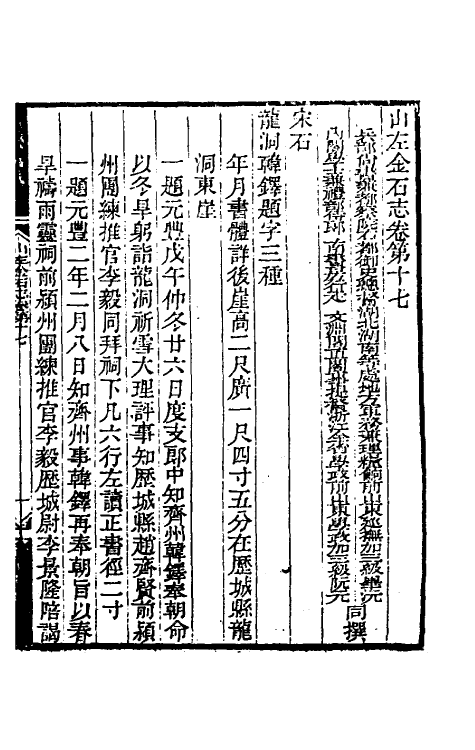 山左金石志卷第十七
兵部尚書兼都察院右都御史總督湖北湖南等處地方軍務兼理糧餉前山東巡撫加三級畢沅
內閣學士兼禮部侍郎 南書房行走 文淵閣直閣事提督浙江全省學政前山東學政加三級阮元
同撰
宋石
龍洞韓鐸題字三種
年月書體詳後崖高二尺廣一尺四寸五分在歷城縣龍
洞東崖
一題元豐戊午仲冬廿六日度支郎中知齊州韓鐸奉朝命
以冬旱躬詣龍洞祈雪大理評事知歷城縣趙齊賢前潁
州團練推官李毅同拜祠下凡六行左讀正書徑二寸
一題元豐二年二月八日知齊州事韓鐸再奉朝旨以春
旱禱雨靈祠前潁州團練推官李毅歷城尉李景隆陪謁